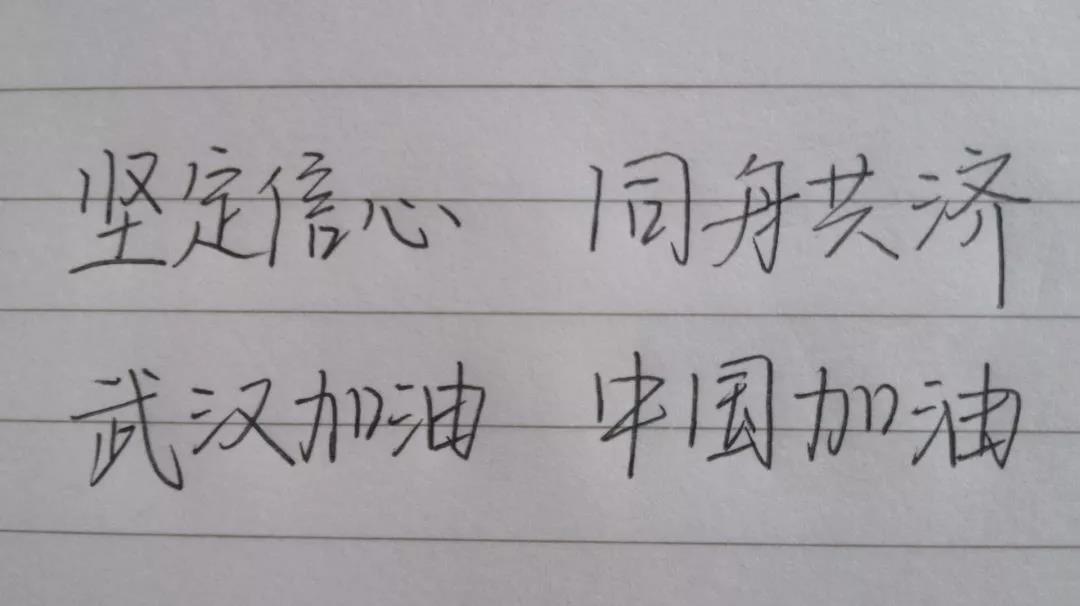 坚定信心 同舟共济
武汉加油 中国加油